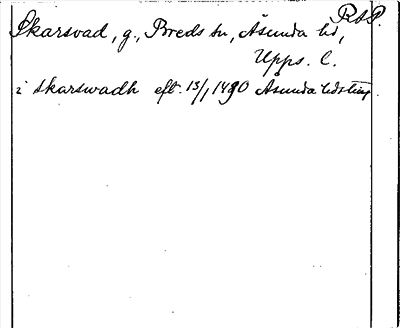 RAP.
Skarsvad, g., Breds sn, Åsunda hd,
Upps. l.
i skarswadh eft. 13/1 1490 Åsunda hdsting